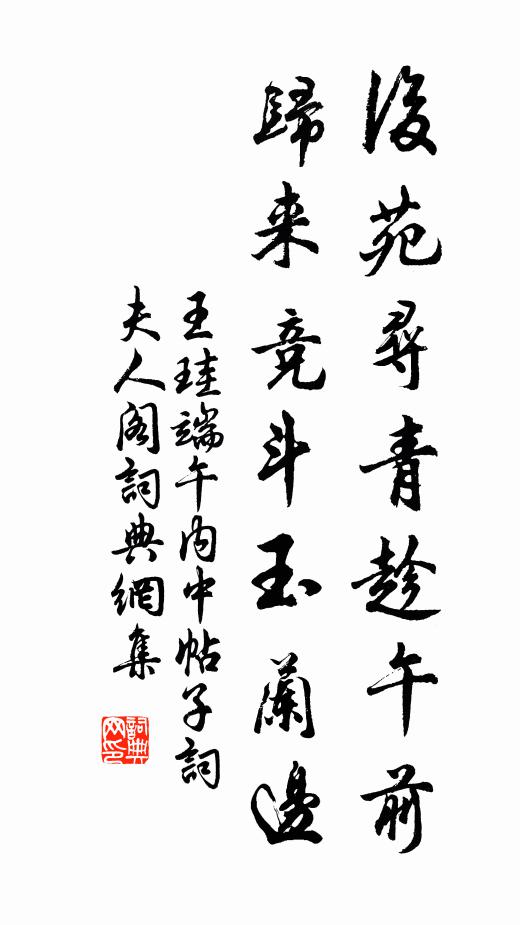 後苑尋青趁午前
歸来竞斗玉蘭邊
王珪端午内中帖子詞
夫人阁詞典網集
詞典网印